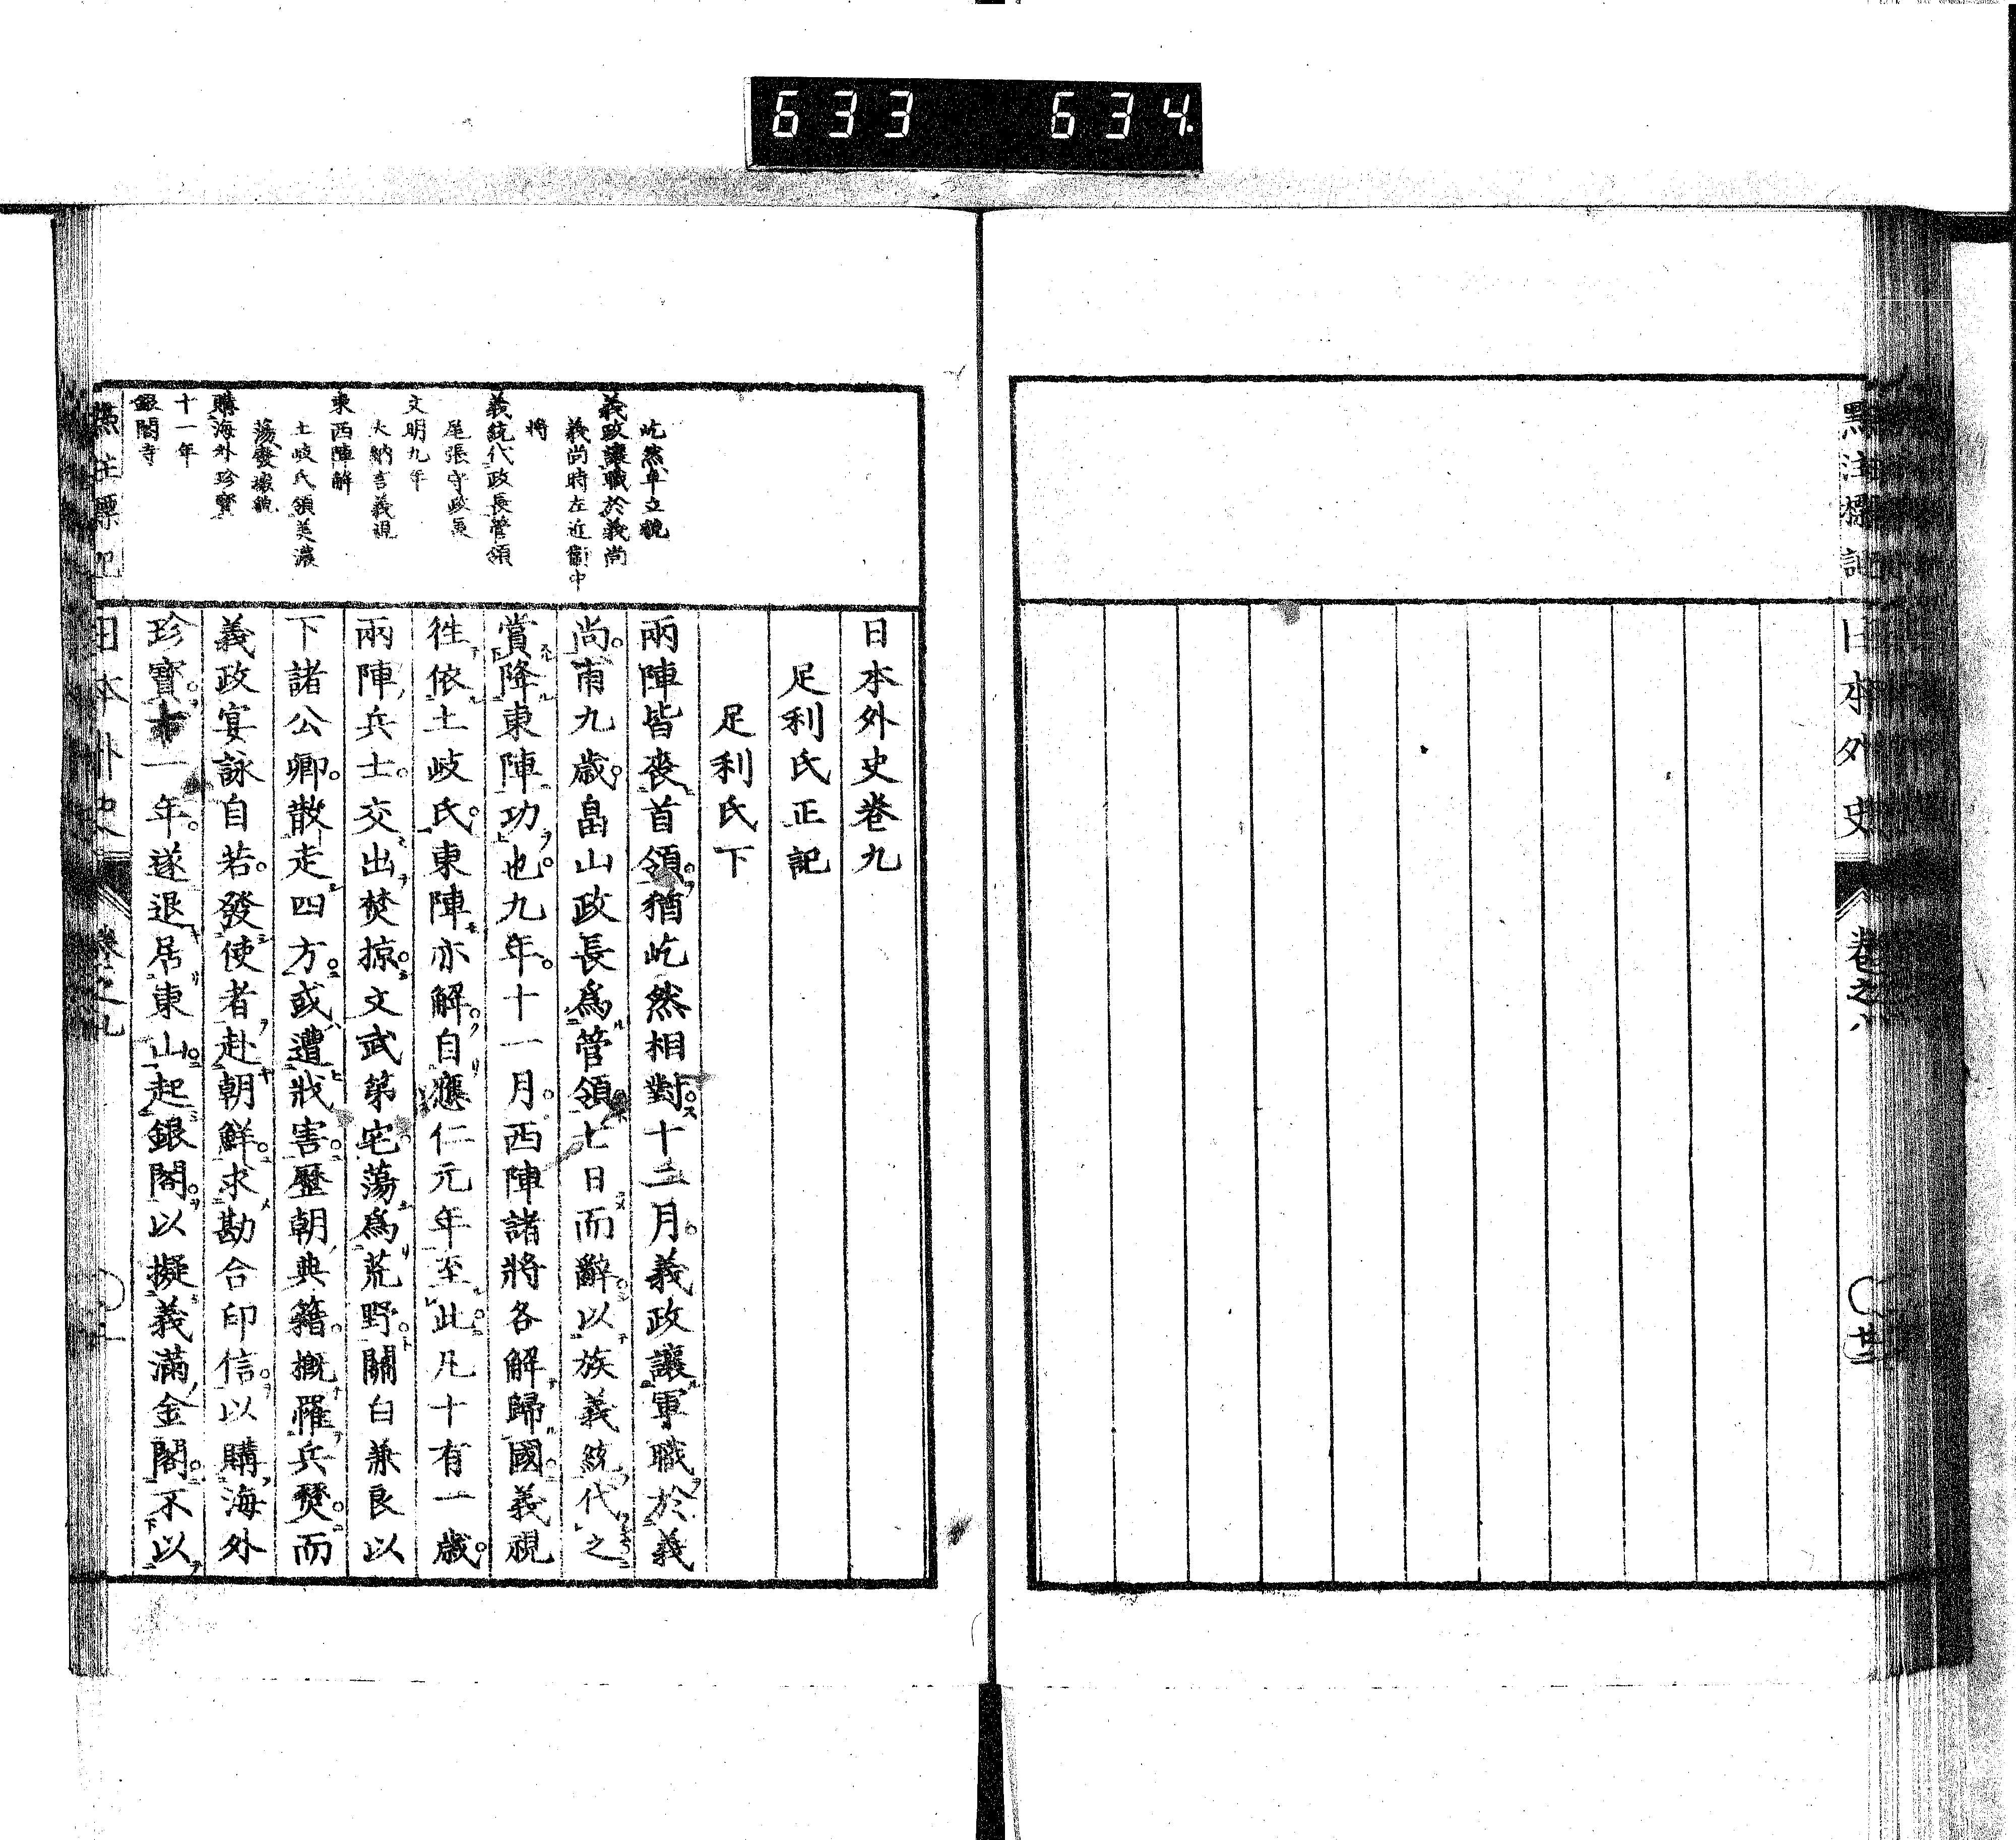 633 634
點注標記 日本外史 卷之八 廿三
屹然卓立貌
義政讓職於義尚
義尚時左近衞中
將
義統代政長管領
尾張守政長
文明九年
大納言義視
東西陣解
土岐氏領美濃
蕩廢壞貌
購海外珍寶
十一年
銀閣寺
日本外史卷九
足利氏正記
足利氏下
兩陣皆喪首領。猶屹然相對。十二月。義政讓軍職於義
尚。甫九歲。畠山政長爲管領。七日而辭。以族義統代之
賞降東陣功也。九年。十一月。西陣諸將各解歸國。義視
徃依土岐氏。東陣亦解。自應仁元年至此。凡十有一歲。
兩陣兵士。交出焚掠。文武第宅。蕩爲荒野。關白兼良以
下諸公卿。散走四方。或遭戕害。歷朝典籍。概罹兵燹。而
義政宴詠自若。發使者赴朝鮮。求勘合印信。以購海外
珍寶。十一年。遂退居東山。起銀閣。以擬義滿金閣。不以
標註標記 日本外史 卷之九 一